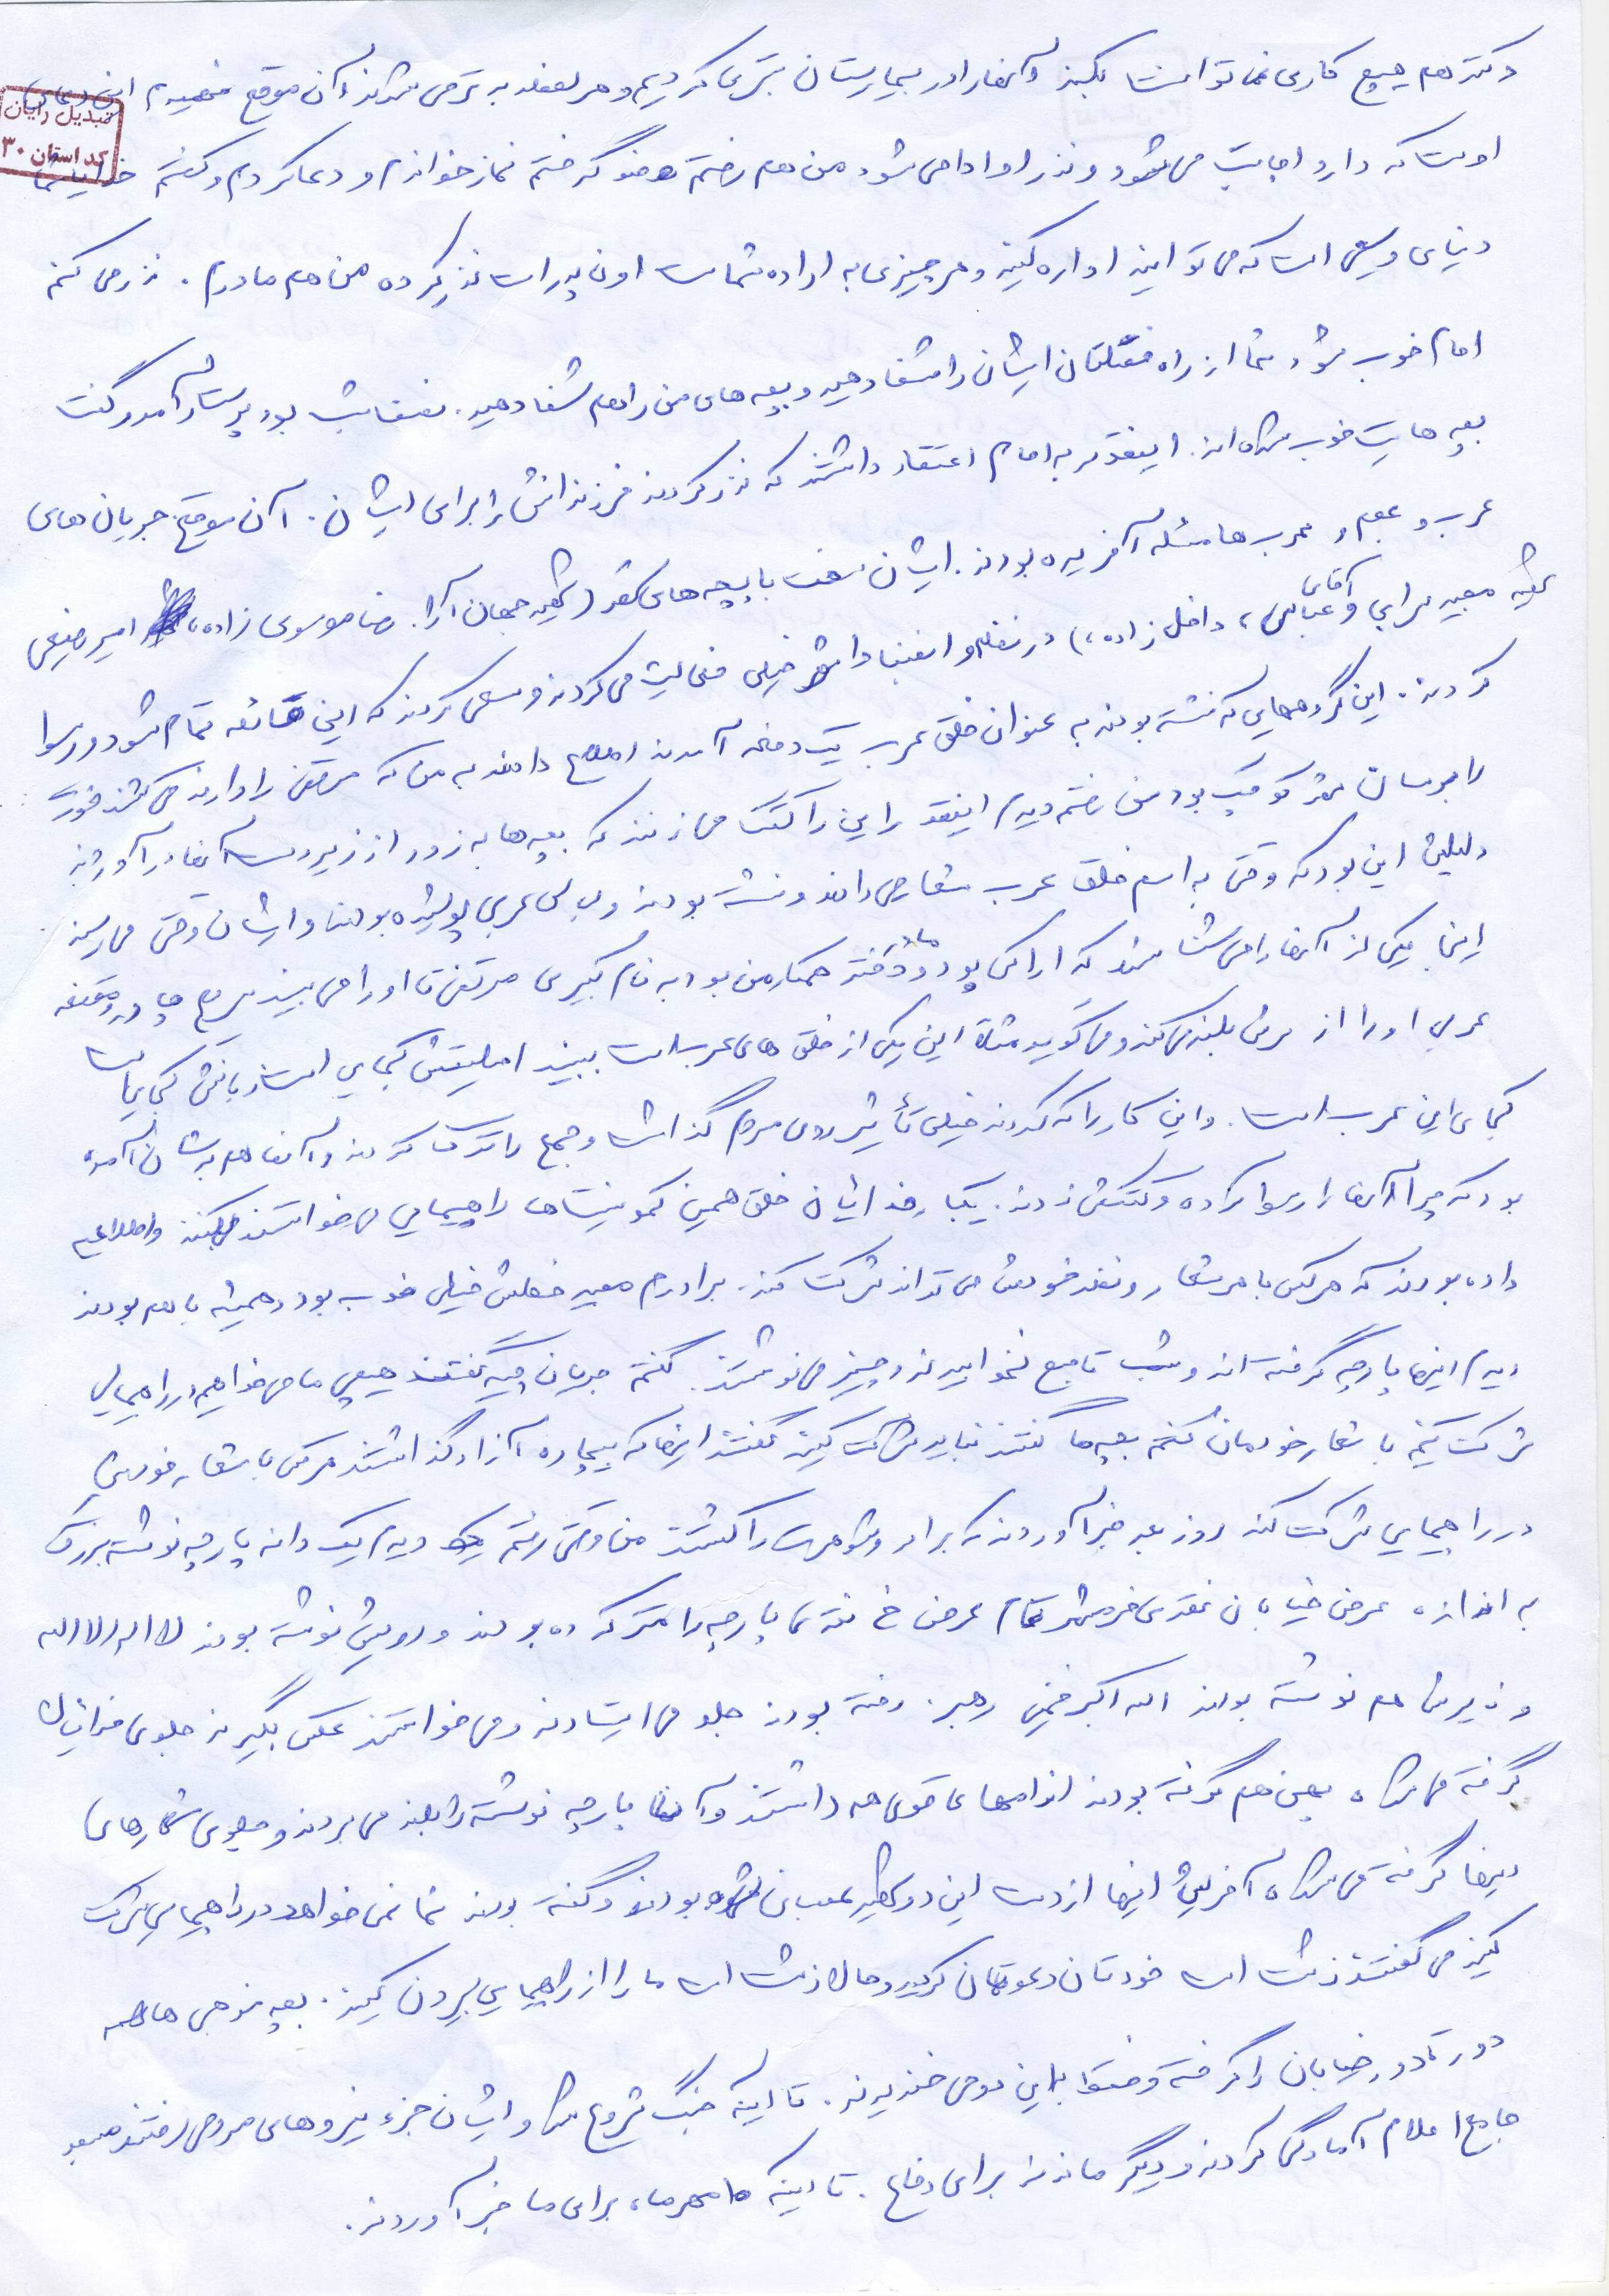 دکتر هم هیچ کاری نمی توانست بکند و آنها را در بیمارستان بستری کردیم و هر لحظه به ترخی شدند آن موقع فهمیدم این دعای
تبدیل رایان
کد استان ۳۰
اوست که دارد اجابت می شود و نذر او ادا می شود من هم رفتم وضو گرفتم نماز خواندم و دعا کردم و گفتم خدایا شما
دنیای وسیعی است که می توانید اداره کنید و هر چیزی به اراده شماست اون پدر است نذر کرده من هم مادرم . نذر می کنم
امام خوب شود شما از راه فضلتان ایشان را شفا دهید و بچه های من را هم شفا دهید . نصف شب بود پرستار آمد و گفت
بچه هایت خوب شده اند . اینقدر به امام اعتقاد داشتند که نذر کردند فرزندانش را برای ایشان . آن موقع جریان های
عرب و عجم و عرب ها مسئله آفریده بودند . ایشان رفت با بچه های سقر (شهید جهان آرا . رضا موسوی زاده، امیر رفیعی
شهید مجید سرابی و آقای عباسی، داخل زاده،) در نظم و انضباط شهر خیلی فعالیت می کردند و سعی کردند که این غائله تمام شود و رسوا
کردند . این گروههایی که نشسته بودند به عنوان خلق عرب یک دفعه آمدند اطلاع دادند به من که مرتضی را دارند می کشند فورا
را برسان متر کوچک بود من رفتم دیدم اینقدر این را کتک می زنند که بچه ها به زور از زیر دست آنها در آوردند
دلیلش این بود که وقتی به اسم خلق عرب شعار می دادند و نشسته بودند و لباس عربی پوشیده بودند و ایشان وقتی می رسند
اینجا یکی از آنها را می شناسند که اراکی بود و دختر همکار من بود به نام کبیری مرتضی تا او را می بیند سریع چادر و مقنعه
عربی او را از سرش بلند می کند و می گوید مثلا این یکی از خلق های عرب است ببینید اصلیتش کجایی است زبانش کجایی است
کجای این عرب است . و این کار را که کردند خیلی تأثیر روی مردم گذاشت و جمع را ترک کردند و آنها هم بدشان آمده
بود که چرا آنها را رسوا کرده و کتکش زدند . یکبار فدائیان خلق همین کمونیست ها راهپیمایی می خواستند بکنند و اطلاعیه
داده بودند که هر کس با هر شعار و نقد خودش می تواند شرکت کند . برادرم مجید خطش خیلی خوب بود و همیشه با هم بودند
دیدم اینها پارچه گرفته اند و شب تا صبح نخوابیدند و چیز می نوشتند . گفتم جریان چیه گفتند هیچی ما می خواهیم در راهپیمایی
شرکت کنیم با شعار خودمان گفتم بچه ها گفتند نباید شرکت کنید گفتند اینها که بیچاره آزاد گذاشتند هر کس با شعار خودش
در راهپیمایی شرکت کند روز بعد خبر آوردند که برادر و شوهرت را کشتند من وقتی رفتم دیدم یک دانه پارچه نوشته بزرگ
به اندازه عرض خیابان نقدی خرمشهر تمام عرض پارچه را متر کرده بودند و رویش نوشته بودند لا اله الا الله
و زیرش هم نوشته بودند الله اکبر خمینی رهبر . رفته بودند جلو می ایستادند و می خواستند عکس بگیرند جلوی فدائیان
گرفته می شد . بعضی هم گرفته بودند اندامهای قوی هم داشتند و آنها پارچه نوشته را بلند می بردند و جلوی شعارهای
اینها گرفته می شد آخرش اینها از دست این دو شهید عصبانی شده بودند و گفته بودند شما نمی خواهد در راهپیمایی شرکت
کنید می گفتند زشت است خودتان دعوتمان کردید و حالا زشت است ما را از راهپیمایی بیرون کنید . بچه ها همه
دور تا دور خیابان را گرفته و فقط به این دو می خندیدند . تا اینکه جنگ شروع شد و ایشان جزء نیروهای مردمی رفتند مسجد
جامع اعلام آمادگی کردند و دیگر ماندند برای دفاع . تا اینکه ۱۵ مهرماه برای ما خبر آوردند .